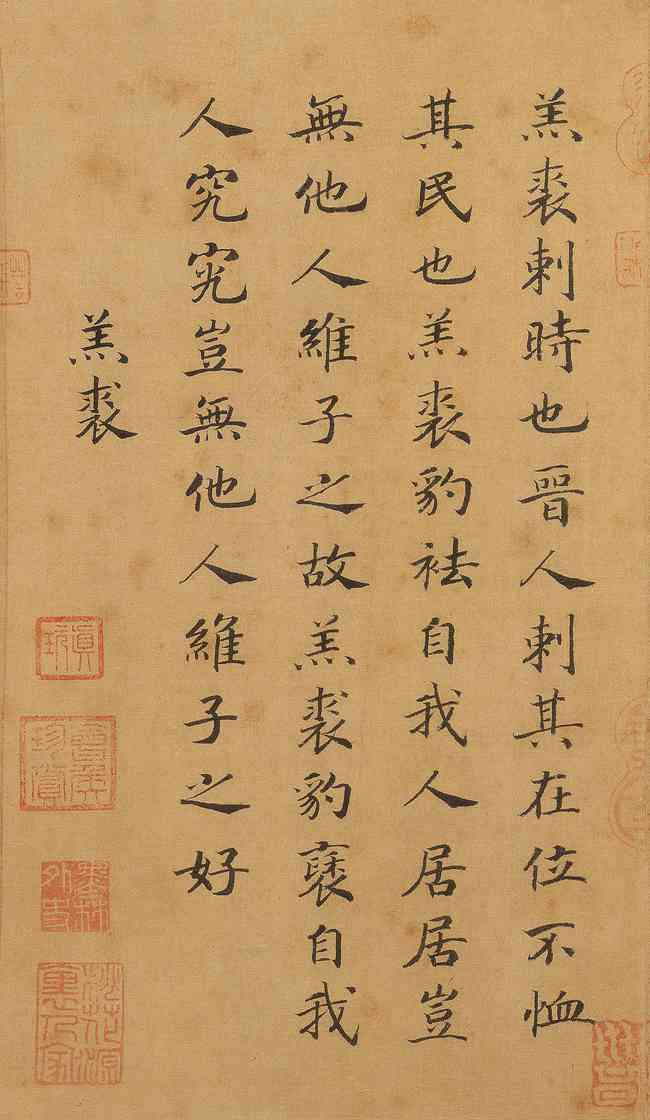 羔裘刺時也晉人刺其在位不恤
其民也羔裘豹袪自我人居居豈
無他人維子之故羔裘豹褎自我
人究究豈無他人維子之好
羔裘
桃花源裏人家